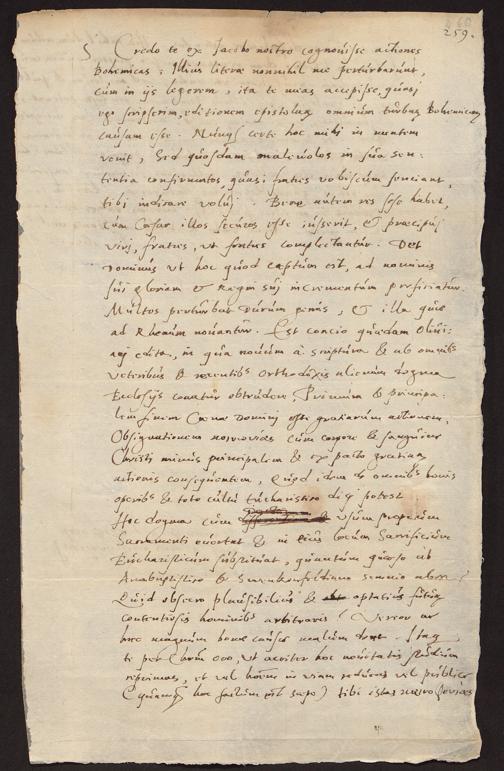 259.
S. Credo te ex Jacobo nostro cognovisse actiones
Bohemicas: Illius literae nonnihil me perturbarunt,
cum in ijs legerem, ita te meas accepisse, quasi
ego scripserim, editionem epistolae omnium turbas Bohemicas
causam esse. Nunquam certe hoc mihi in mentem
venit, Sed quosdam malevolos in sua sen-
tentia confirmatos, quasi fratres vobiscum sentiant,
tibi indicare volui. Bene autem res se habet,
cum Caesar illos securos esse iusserit, & praecipui
viri, fratres, ut fontes complectantur. Det
Dominus ut hoc quod captum est, ad nominis
sui gloriam & Regni sui incrementum proficiatur.
Multos perturbat durum genus, & illa quae
ad Rhenum novantur. Est concio quaedam Olivi-
ani edita, in qua novum à scriptura & ab omnibus
veteribus & recentibus Orthodoxis alienum dogma
Ecclesijs conatur obtrudere Primum & principa-
lem finem Caenae Domini esse gratiarum actionem.
Obsignationem κοινωνίας cum corpore & sanguine
Christi minus principalem & ex pacto gratiarum
actionis consequentem, Quod idem de omnibus bonis
operibus & toto cultu Eucharistico dici potest
Hoc dogma cum usum proprium
Sacramenti evertat & in eius locum Sacrificium
Eucharisticum substituat, quantum quaeso ab
Anabaptistico & Suenkonfeldiano somnio abest?
Quid obsecro plausibilius & optatius futurum
contentiosis hominibus arbitraris? Vereor ne
hoc magnum bonae causae malum det. Itaque
te per Christum oro, ut acriter hoc novitatis studium
reprimas, et vel hominem in viam reducas vel publice
(quamquam hoc factum est saepe) tibi istas